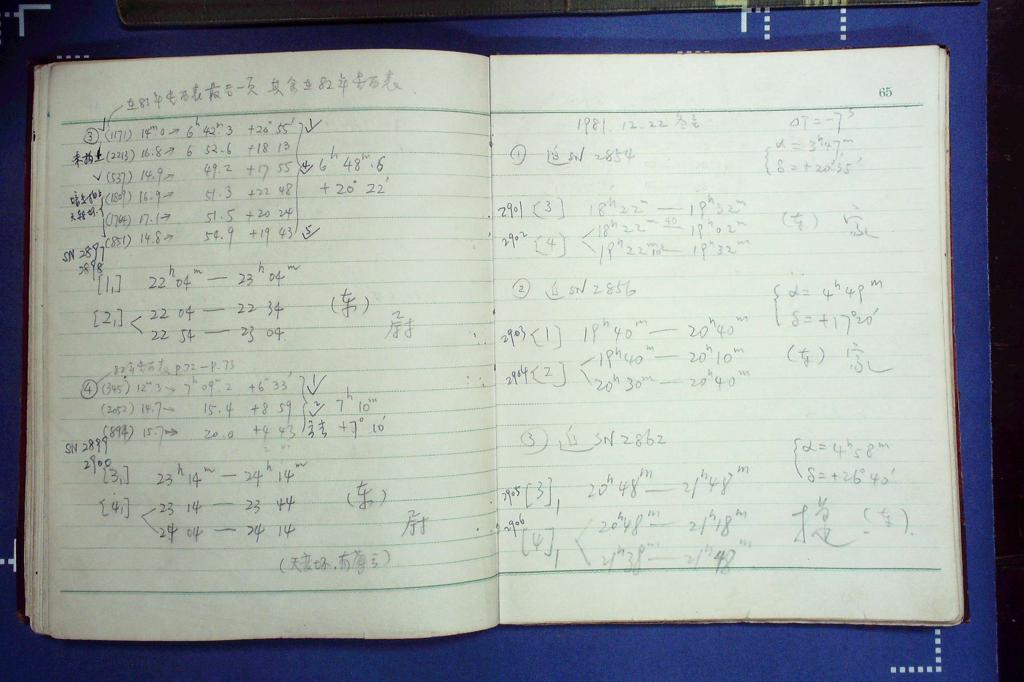 在81年步历表最后一页 其余在82年步历表
③ (1171) 14.0 → 6ʰ 42ᵐ.3 +20° 55′ 1
(2213) 16.8 → 6 52.6 +18 13
✓ (537) 14.9 → 49.2 +17 55 6ʰ 48ᵐ.6
(1809) 16.9 → 51.3 +22 48 +20° 22′
(1764) 17.1 → 51.5 +20 24
(851) 14.8 → 54.9 +19 43
SN 2897
2898
[1,] 22ʰ 04ᵐ — 23ʰ 04ᵐ
[2,] 22 04 — 22 34 (东)
22 54 — 23 04
p.72 – p.73
④ (345) 12ᵐ.3 → 7ʰ 09ᵐ.2 +6° 33′ 1
(2052) 14.7 → 15.4 +8 59 2 7ʰ 10ᵐ
(894) 15.7 → 20.0 +4 43 +7° 10′
SN 2899
2900
[3,] 23ʰ 14ᵐ — 24ʰ 14ᵐ
[4,] 23 14 — 23 44 (东)
24 04 — 24 14
65
1981.12.22 冬至 ΔT = −7ˢ
① 近 SN 2854 α = 3ʰ47ᵐ
δ = +20°35′
2901 [3] 18ʰ22ᵐ — 19ʰ32ᵐ
2902 [4] 18ʰ22ᵐ — 19ʰ02ᵐ (东)
19ʰ22ᵐ — 19ʰ32ᵐ
② 近 SN 2856 α = 4ʰ49ᵐ
δ = +17°20′
2903 [1] 19ʰ40ᵐ — 20ʰ40ᵐ
2904 [2] 19ʰ40ᵐ — 20ʰ10ᵐ (东)
20ʰ30ᵐ — 20ʰ40ᵐ
③ 近 SN 2862 α = 4ʰ58ᵐ
δ = +26°40′
2905 [3]₁ 20ʰ48ᵐ — 21ʰ48ᵐ
2906 [4]₁ 20ʰ48ᵐ — 21ʰ18ᵐ (东)
21ʰ38ᵐ — 21ʰ48ᵐ